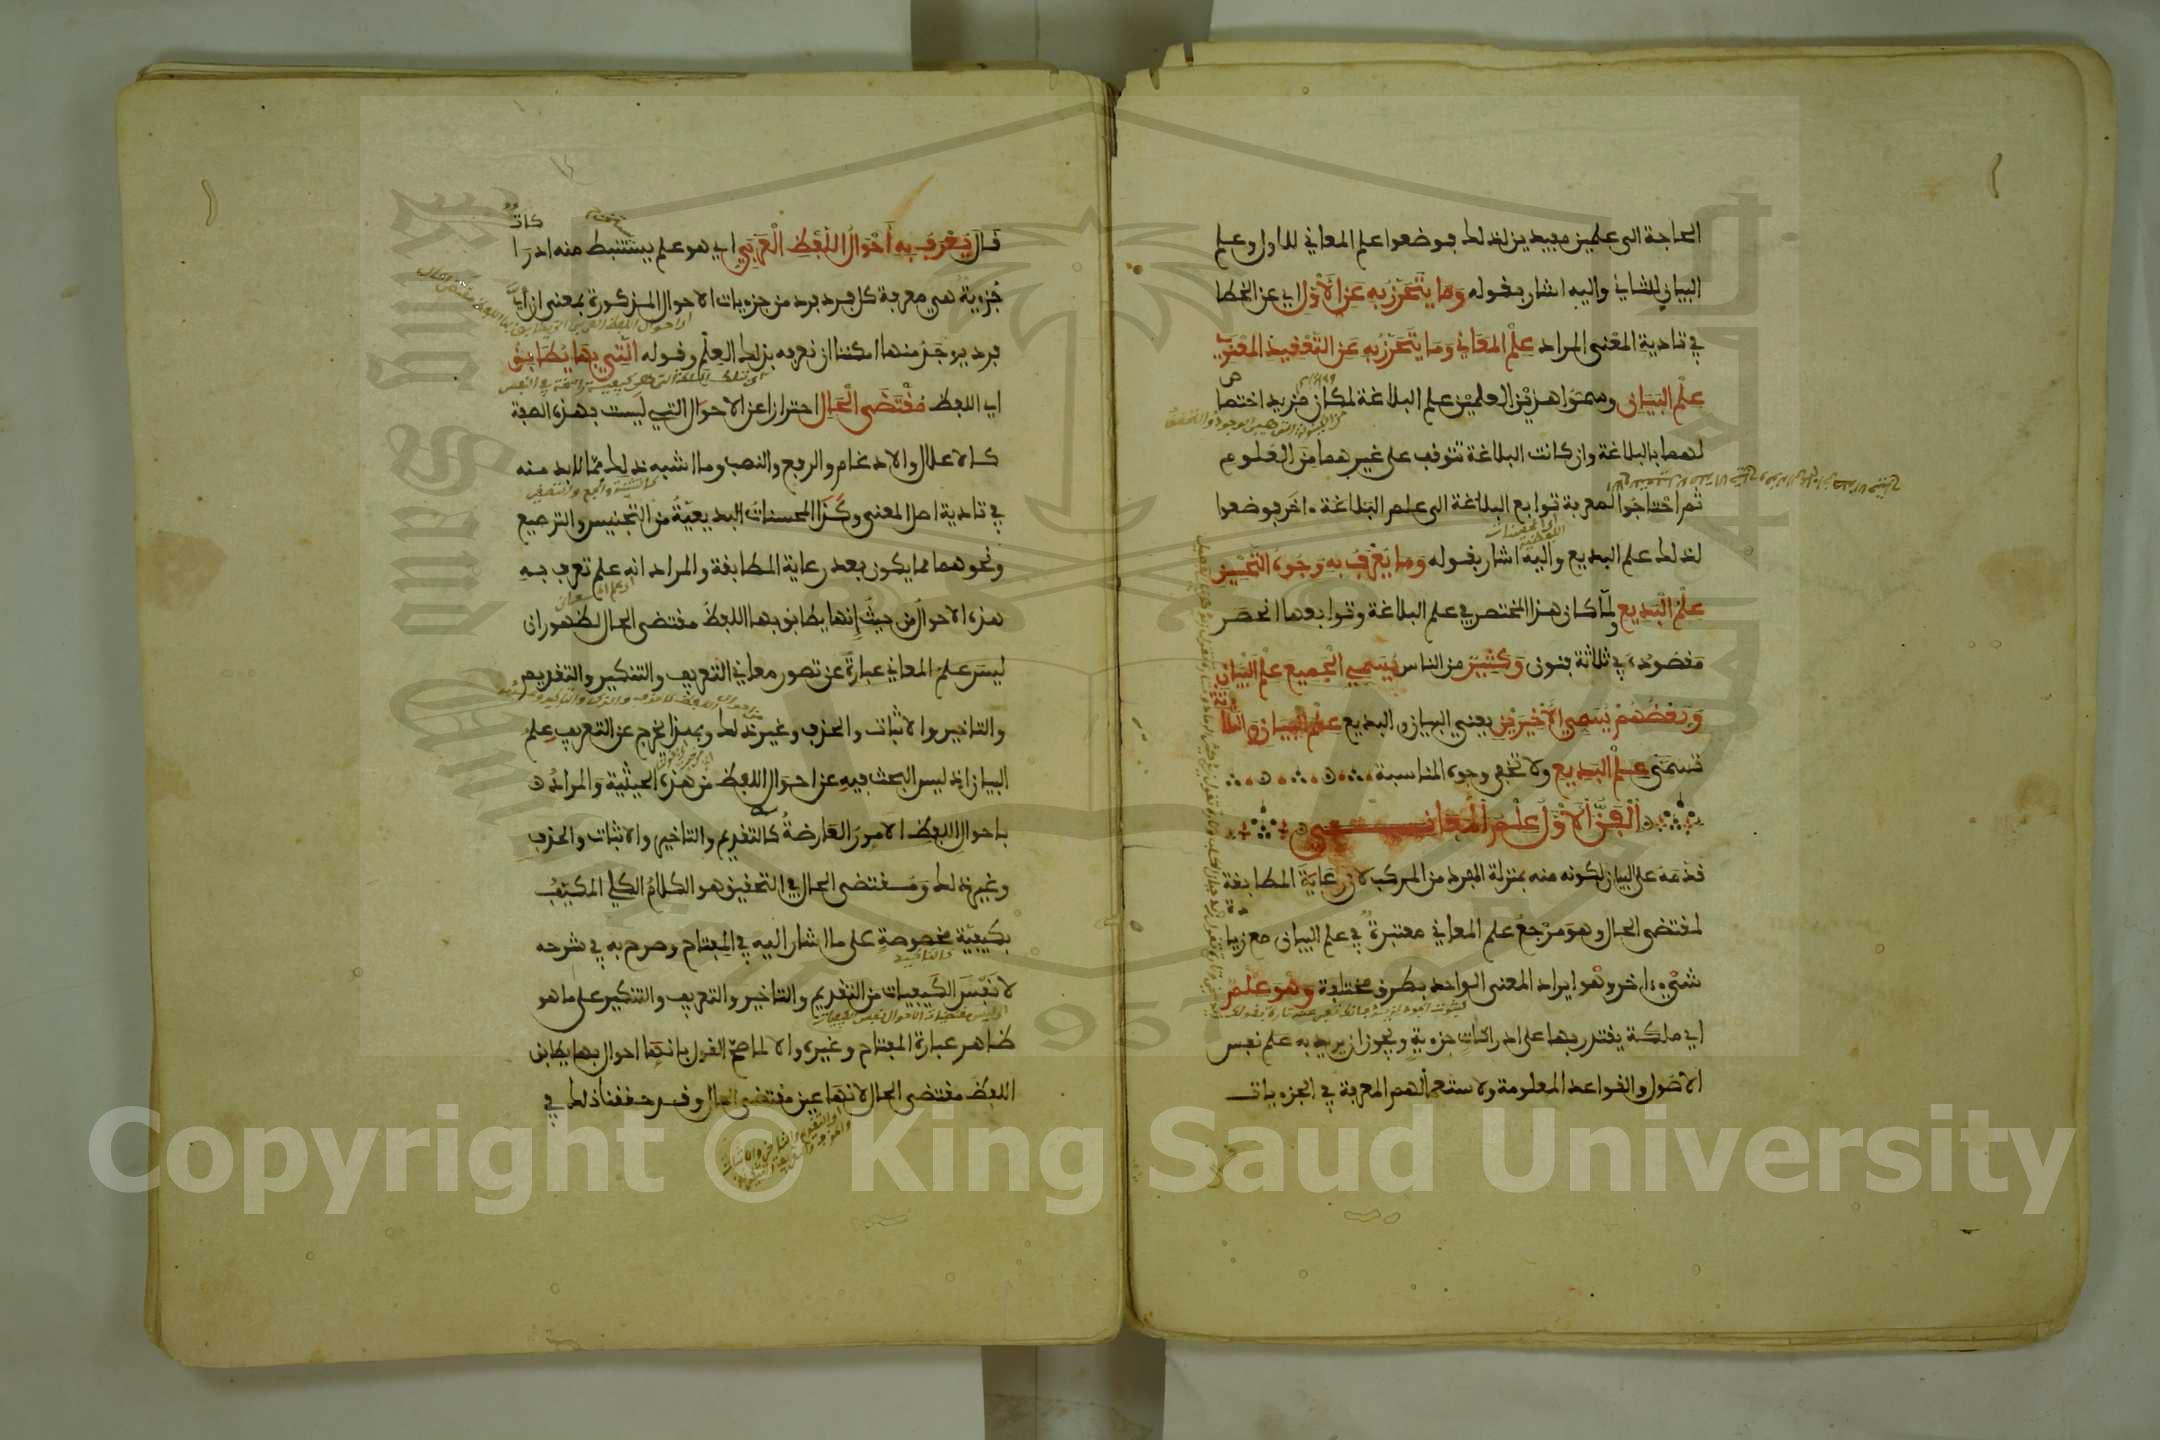 الحاجة الى علمين مفيدين لذلك فوضعوا علم المعاني للاول وعلم
البيان للثاني واليه اشار بقوله وما يحترز به عن الأول اي عن الخطا
في تادية المعنى المراد علم المعاني وما يحترز به عن التعقيد المعنوي
علم البيان وسموا هذين العلمين علم البلاغة لمكان مزيد اختصا
ص
لهما بالبلاغة وان كانت البلاغة تتوقف على غيرهما من العلوم
ثم احتاجوا لمعرفة توابع البلاغة الى علم البلاغة ءاخر فوضعوا
لذلك علم البديع واليه اشار بقوله وما يعرف به وجوه التحسين
علم البديع ولما كان هذا المختصر في علم البلاغة وتوابعها انحصر
مقصوده في ثلاثة فنون وكثير من الناس يسمي الجميع علم البيان
وبعضهم يسمي الأخيرين يعني البيان والبديع علم البيان والثلا
ثة
علم البديع ولا تخفى وجوه المناسبة
الفن الأول علم المعاني
قدمه على البيان لكونه منه بمنزلة المفرد من المركب لان رعاية المطابقة
لمقتضى الحال وهو مرجع علم المعاني معتبرة في علم البيان مع زيا
دة
شيء ءاخر وهو ايراد المعنى الواحد بطرق مختلفة وهو علم
اي ملكة يقتدر بها على ادراكات جزوية ويجوز ان يريد به علم نفس
الاصول والقواعد المعلومة ولاستعمالهم المعرفة في الجزويات
قال يعرف به أحوال اللفظ العربي اي هو علم يستنبط منه ادرا
كات
جزوية هي معرفة كل فرد فرد من جزويات الاحوال المذكورة بمعنى ان أي
فرد يوجد منها امكننا ان نعرفه بذلك العلم وقوله التي بها يطابق
اي اللفظ مقتضى الحال احترازا عن الاحوال التي ليست بهذه الصفة
كالاعلال والادغام والرفع والنصب وما اشبه ذلك مما لا بد منه
في تادية اصل المعنى وكذا المحسنات البديعية من التجنيس والترصيع
ونحوهما مما يكون بعد رعاية المطابقة والمراد انه علم تعرف به
هذه الاحوال من حيث إنها يطابق بها اللفظ مقتضى الحال لظهور ان
ليس علم المعاني عبارة عن تصور معاني التعريف والتنكير والتقديم
والتاخير والاثبات والحذف وغير ذلك وبهذا يخرج عن التعريف علم
البيان اذ ليس البحث فيه عن احوال اللفظ من هذه الحيثية والمراد
باحوال اللفظ الامور العارضة له كالتقديم والتاخير والاثبات والحذف
وغير ذلك ومقتضى الحال في التحقيق هو الكلام الكلي المكيف
بكيفية مخصوصة على ما اشار اليه في المفتاح وصرح به في شرحه
لا نفس الكيفيات من التقديم والتاخير والتعريف والتنكير على ما هو
ظاهر عبارة المفتاح وغيره والا لما صح القول بانها احوال بها يطابق
اللفظ مقتضى الحال لانها عين مقتضى الحال وقد حققنا ذلك في
King Saud University
1957
Copyright © King Saud University